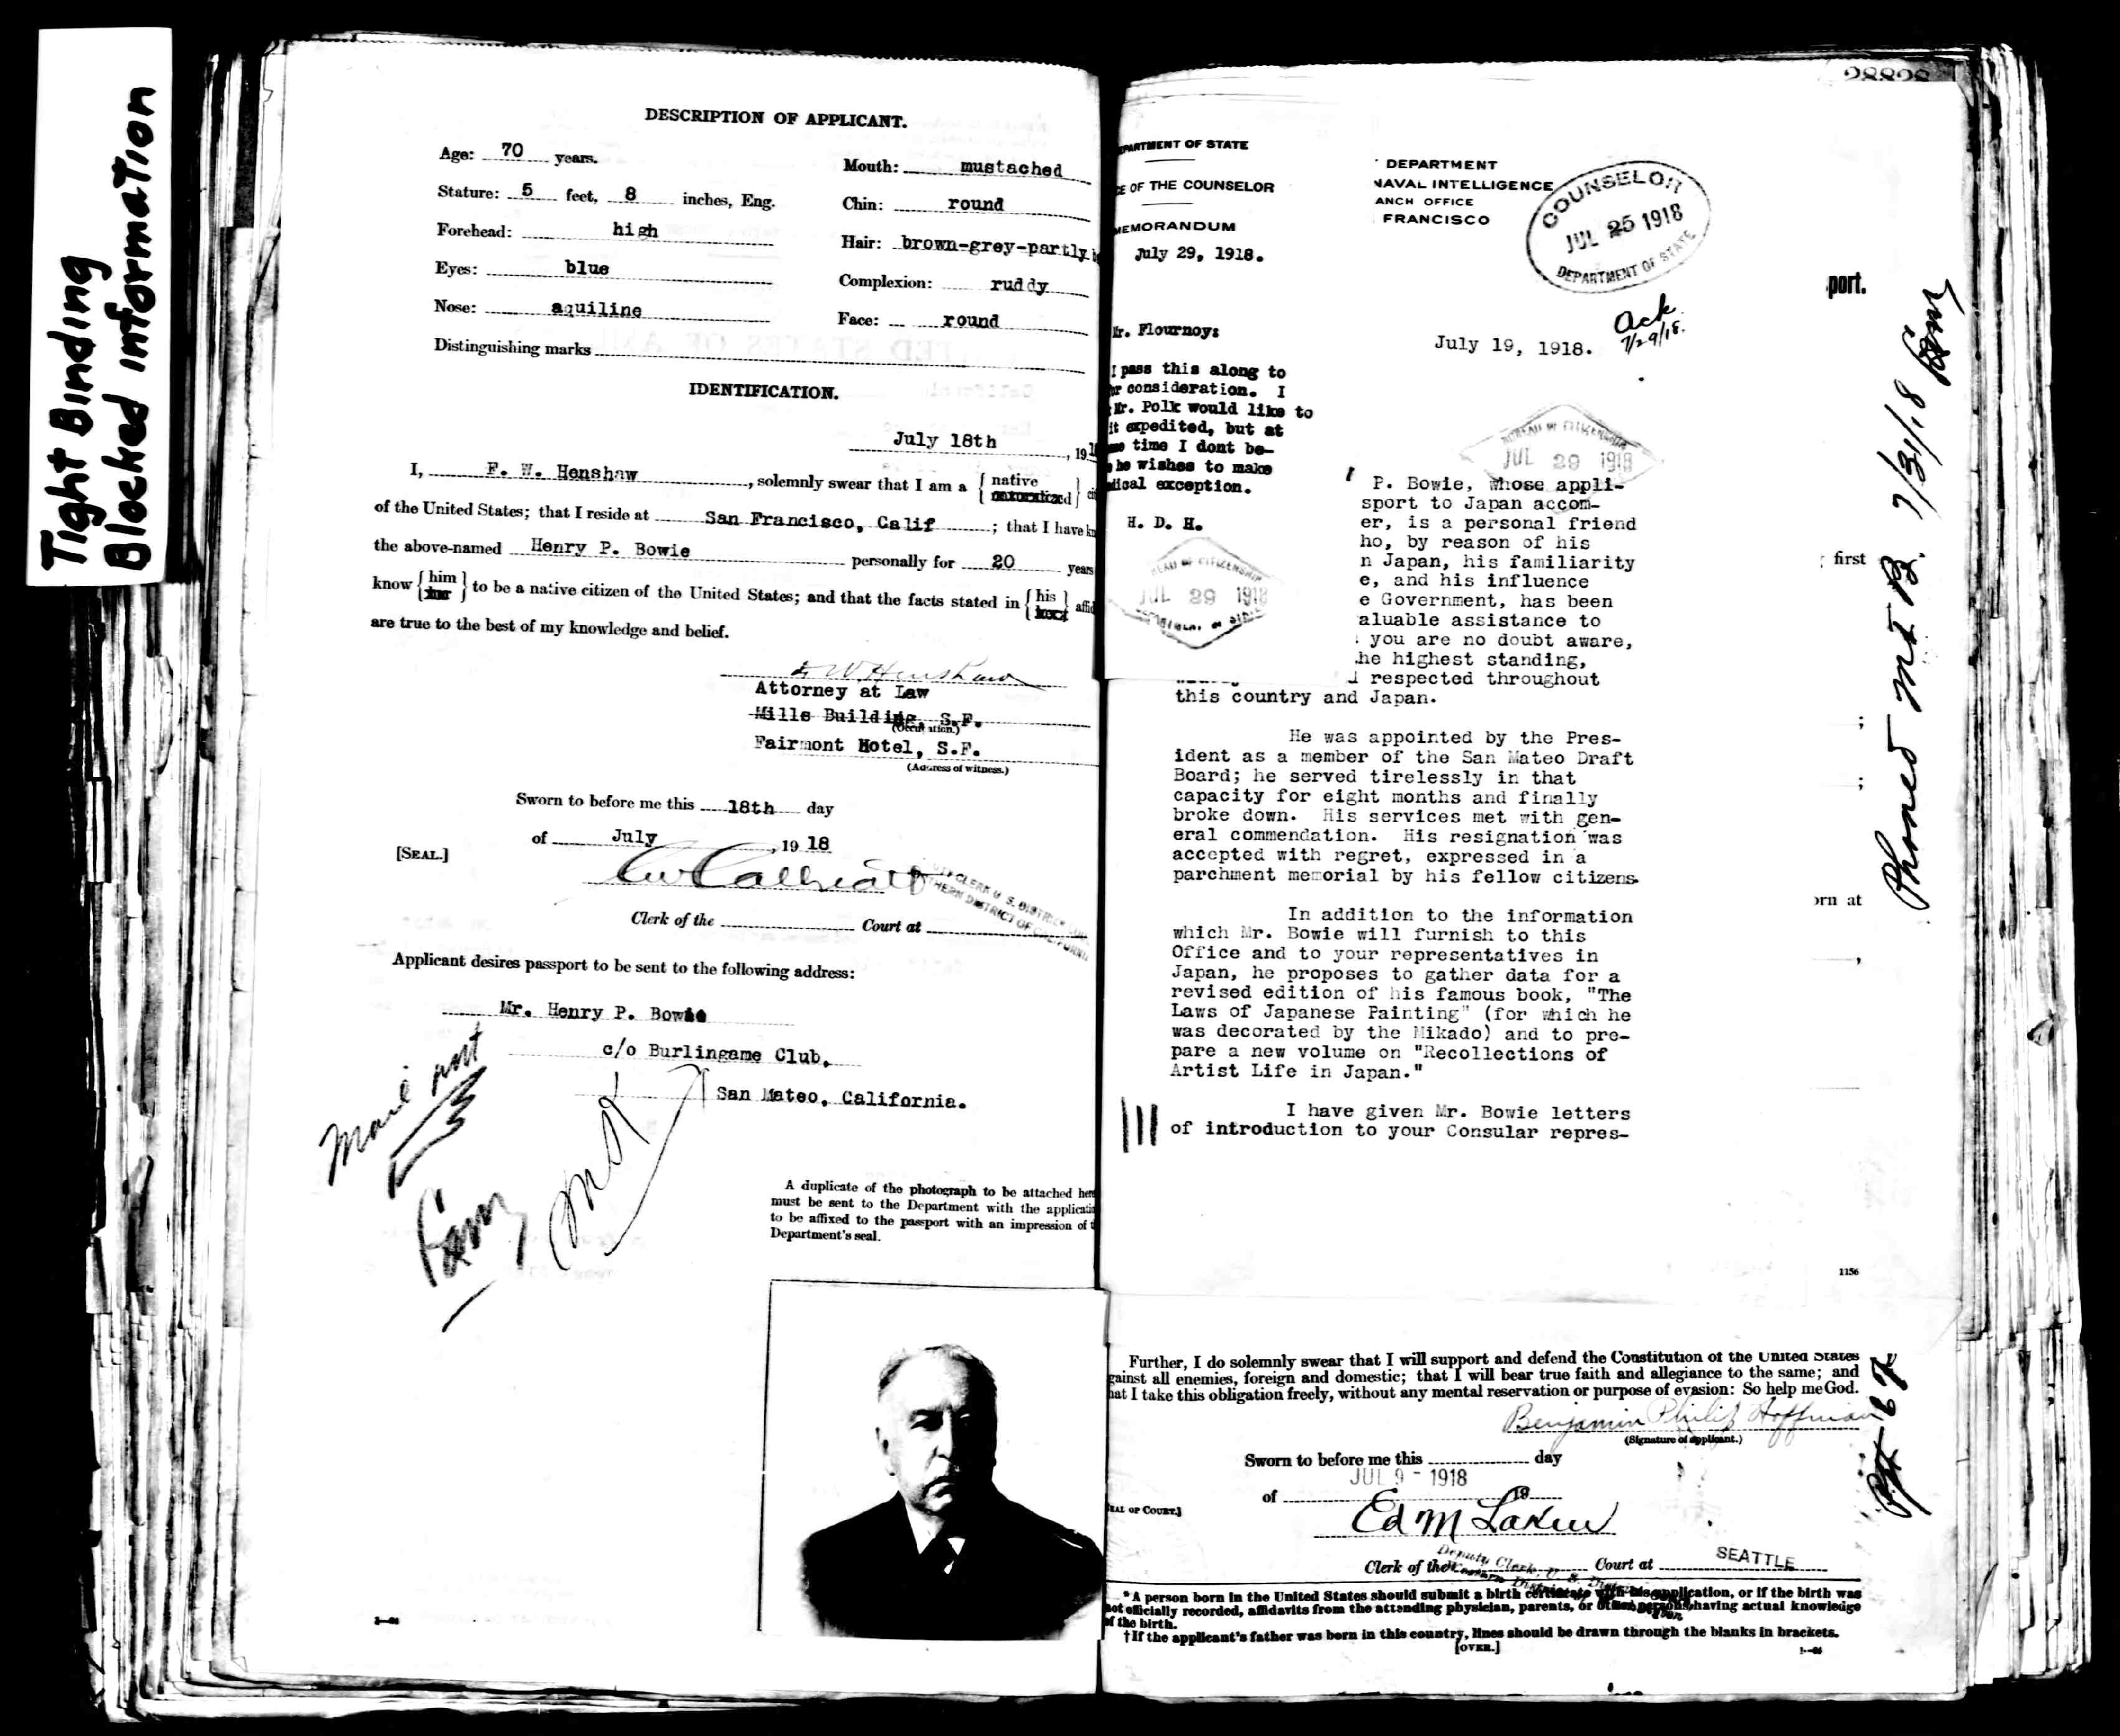 Tight Binding
Blocked information
DESCRIPTION OF APPLICANT.
Age: 70 years.
Stature: 5 feet, 8 inches, Eng.
Forehead: high
Eyes: blue
Nose: aquiline
Distinguishing marks
Mouth: mustached
Chin: round
Hair: brown-grey-partly
Complexion: ruddy
Face: round
IDENTIFICATION.
July 18th, 19
I, F. W. Henshaw, solemnly swear that I am a { native
naturalized }
of the United States; that I reside at San Francisco, Calif; that I have
the above-named Henry P. Bowie personally for 20 years
know { him } to be a native citizen of the United States; and that the facts stated in { his }
are true to the best of my knowledge and belief.
F W Henshaw
Attorney at Law
Mills Building, S.F.
(Occupation.)
Fairmont Hotel, S.F.
(Address of witness.)
Sworn to before me this 18th day
of July, 19 18
[SEAL.]
CLERK U. S. DISTRICT
DISTRICT OF CALIFORNIA
Clerk of the Court at
Applicant desires passport to be sent to the following address:
Mr. Henry P. Bowie
c/o Burlingame Club,
San Mateo, California.
A duplicate of the photograph to be attached
must be sent to the Department with the
to be affixed to the passport with an impression of
Department's seal.
28828
EPARTMENT OF STATE
E OF THE COUNSELOR
MEMORANDUM
July 29, 1918.
r. Flournoy:
I pass this along to
r consideration. I
Mr. Polk would like to
it expedited, but at
me time I dont be-
he wishes to make
dical exception.
H. D. H.
JUL 29 1918
DEPARTMENT
NAVAL INTELLIGENCE
ANCH OFFICE
FRANCISCO
COUNSELOR
JUL 25 1918
DEPARTMENT OF STATE
port.
Ack
7/29/18.
July 19, 1918.
BUREAU OF CITIZENSHIP
JUL 29 1918
P. Bowie, whose appli-
sport to Japan accom-
er, is a personal friend
ho, by reason of his
n Japan, his familiarity
e, and his influence
e Government, has been
aluable assistance to
you are no doubt aware,
he highest standing,
respected throughout
this country and Japan.
He was appointed by the Pres-
ident as a member of the San Mateo Draft
Board; he served tirelessly in that
capacity for eight months and finally
broke down. His services met with gen-
eral commendation. His resignation was
accepted with regret, expressed in a
parchment memorial by his fellow citizens.
In addition to the information
which Mr. Bowie will furnish to this
Office and to your representatives in
Japan, he proposes to gather data for a
revised edition of his famous book, "The
Laws of Japanese Painting" (for which he
was decorated by the Mikado) and to pre-
pare a new volume on "Recollections of
Artist Life in Japan."
I have given Mr. Bowie letters
of introduction to your Consular repres-
first
;
;
orn at
,
1156
Phoned 7/31/18
Further, I do solemnly swear that I will support and defend the Constitution of the United States
gainst all enemies, foreign and domestic; that I will bear true faith and allegiance to the same; and
hat I take this obligation freely, without any mental reservation or purpose of evasion: So help me God.
Benjamin Philip Hoffman
(Signature of applicant.)
Sworn to before me this day
JUL 9 - 1918
of 19
EAL OF COURT.]
Ed M Lakin
Deputy Clerk, U. S.
Clerk of the Court at SEATTLE
*A person born in the United States should submit a birth certificate with his application, or if the birth was
not officially recorded, affidavits from the attending physician, parents, or other persons having actual knowledge
of the birth.
†If the applicant's father was born in this country, lines should be drawn through the blanks in brackets.
[OVER.]